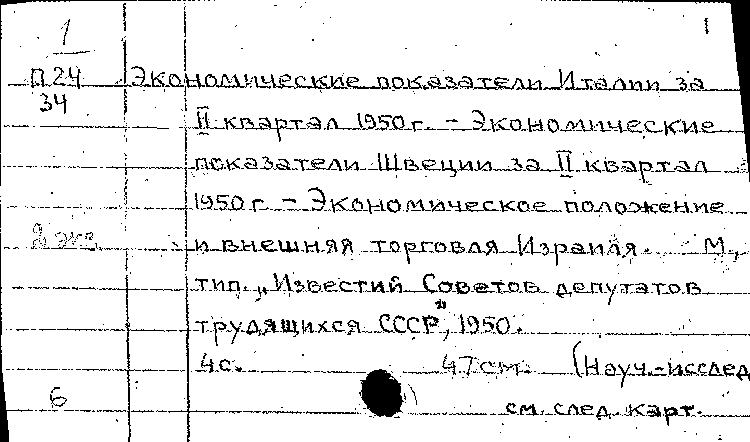 1
1
П24 Экономические показатели Италии за
34
II квартал 1950г. – Экономические
показатели Швеции за II квартал
1950г. – Экономическое положение
2 экз. и внешняя торговля Израиля. М.,
тип. „Известий Советов депутатов
трудящихся СССР", 1950.
4с. 47см. (Науч.-исслед
6 см. след. карт.